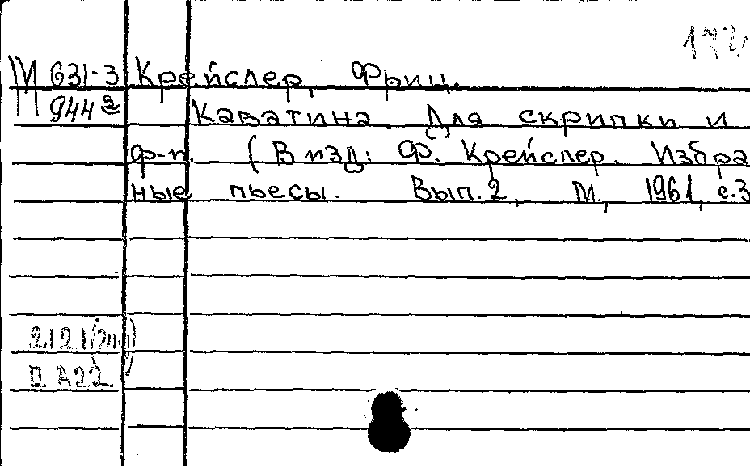 М 631-3 Крейслер, Фриц.
944² Каватина. Для скрипки и
ф-п. (В изд: Ф. Крейслер. Избра
ные пьесы. Вып. 2, М, 1961, с.3
2121
II А22